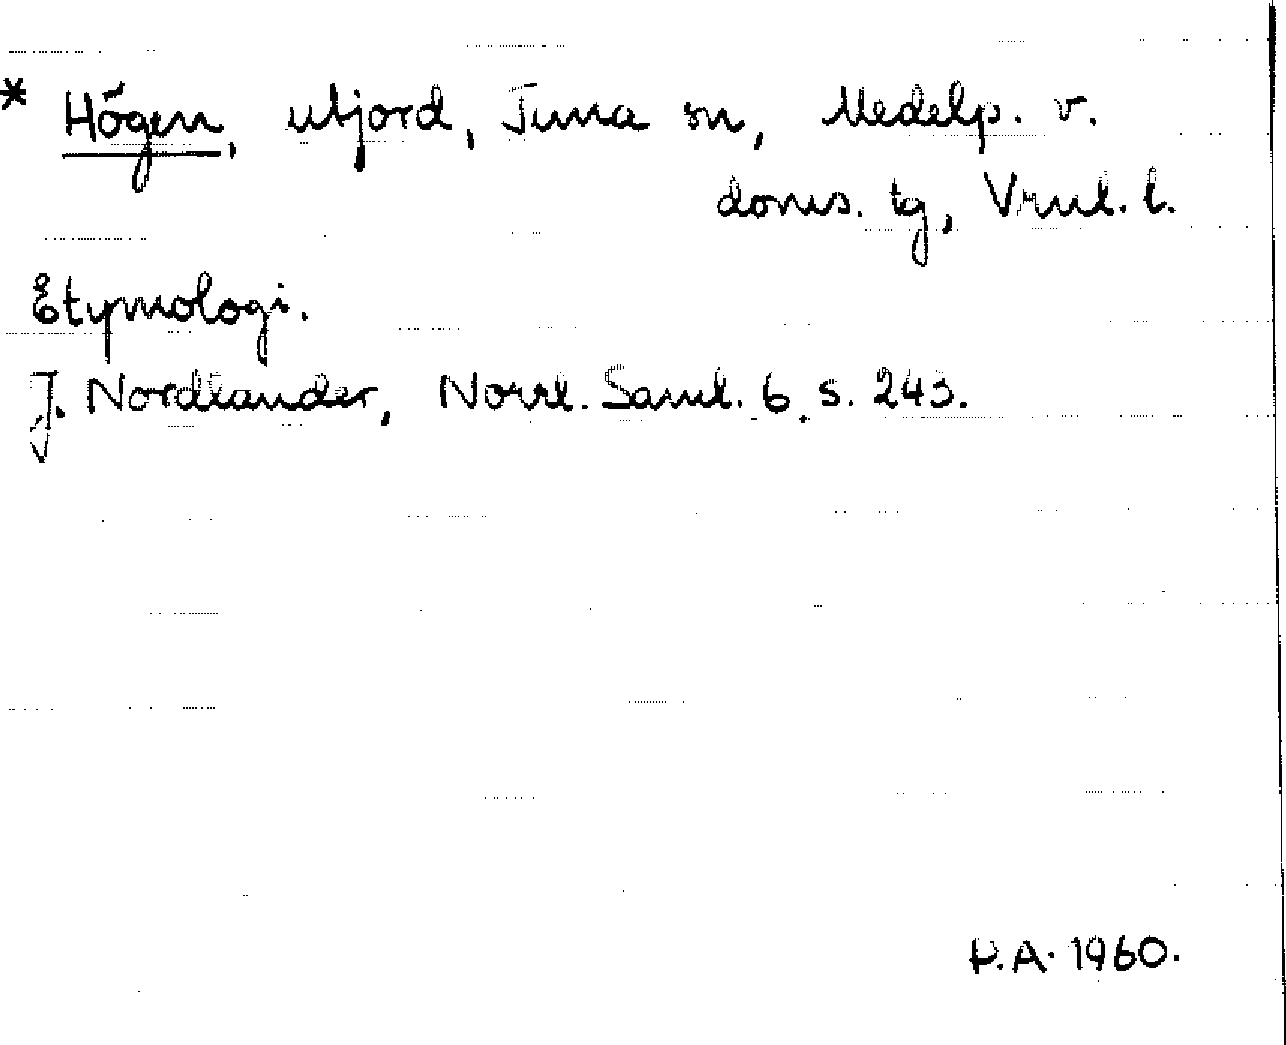 * Högen, utjord, Tuna sn, Medelp. v.
doms. tg, Vrnl. l.
Etymologi.
J. Nordlander, Norrl. Saml. 6, s. 243.
P.A. 1960.